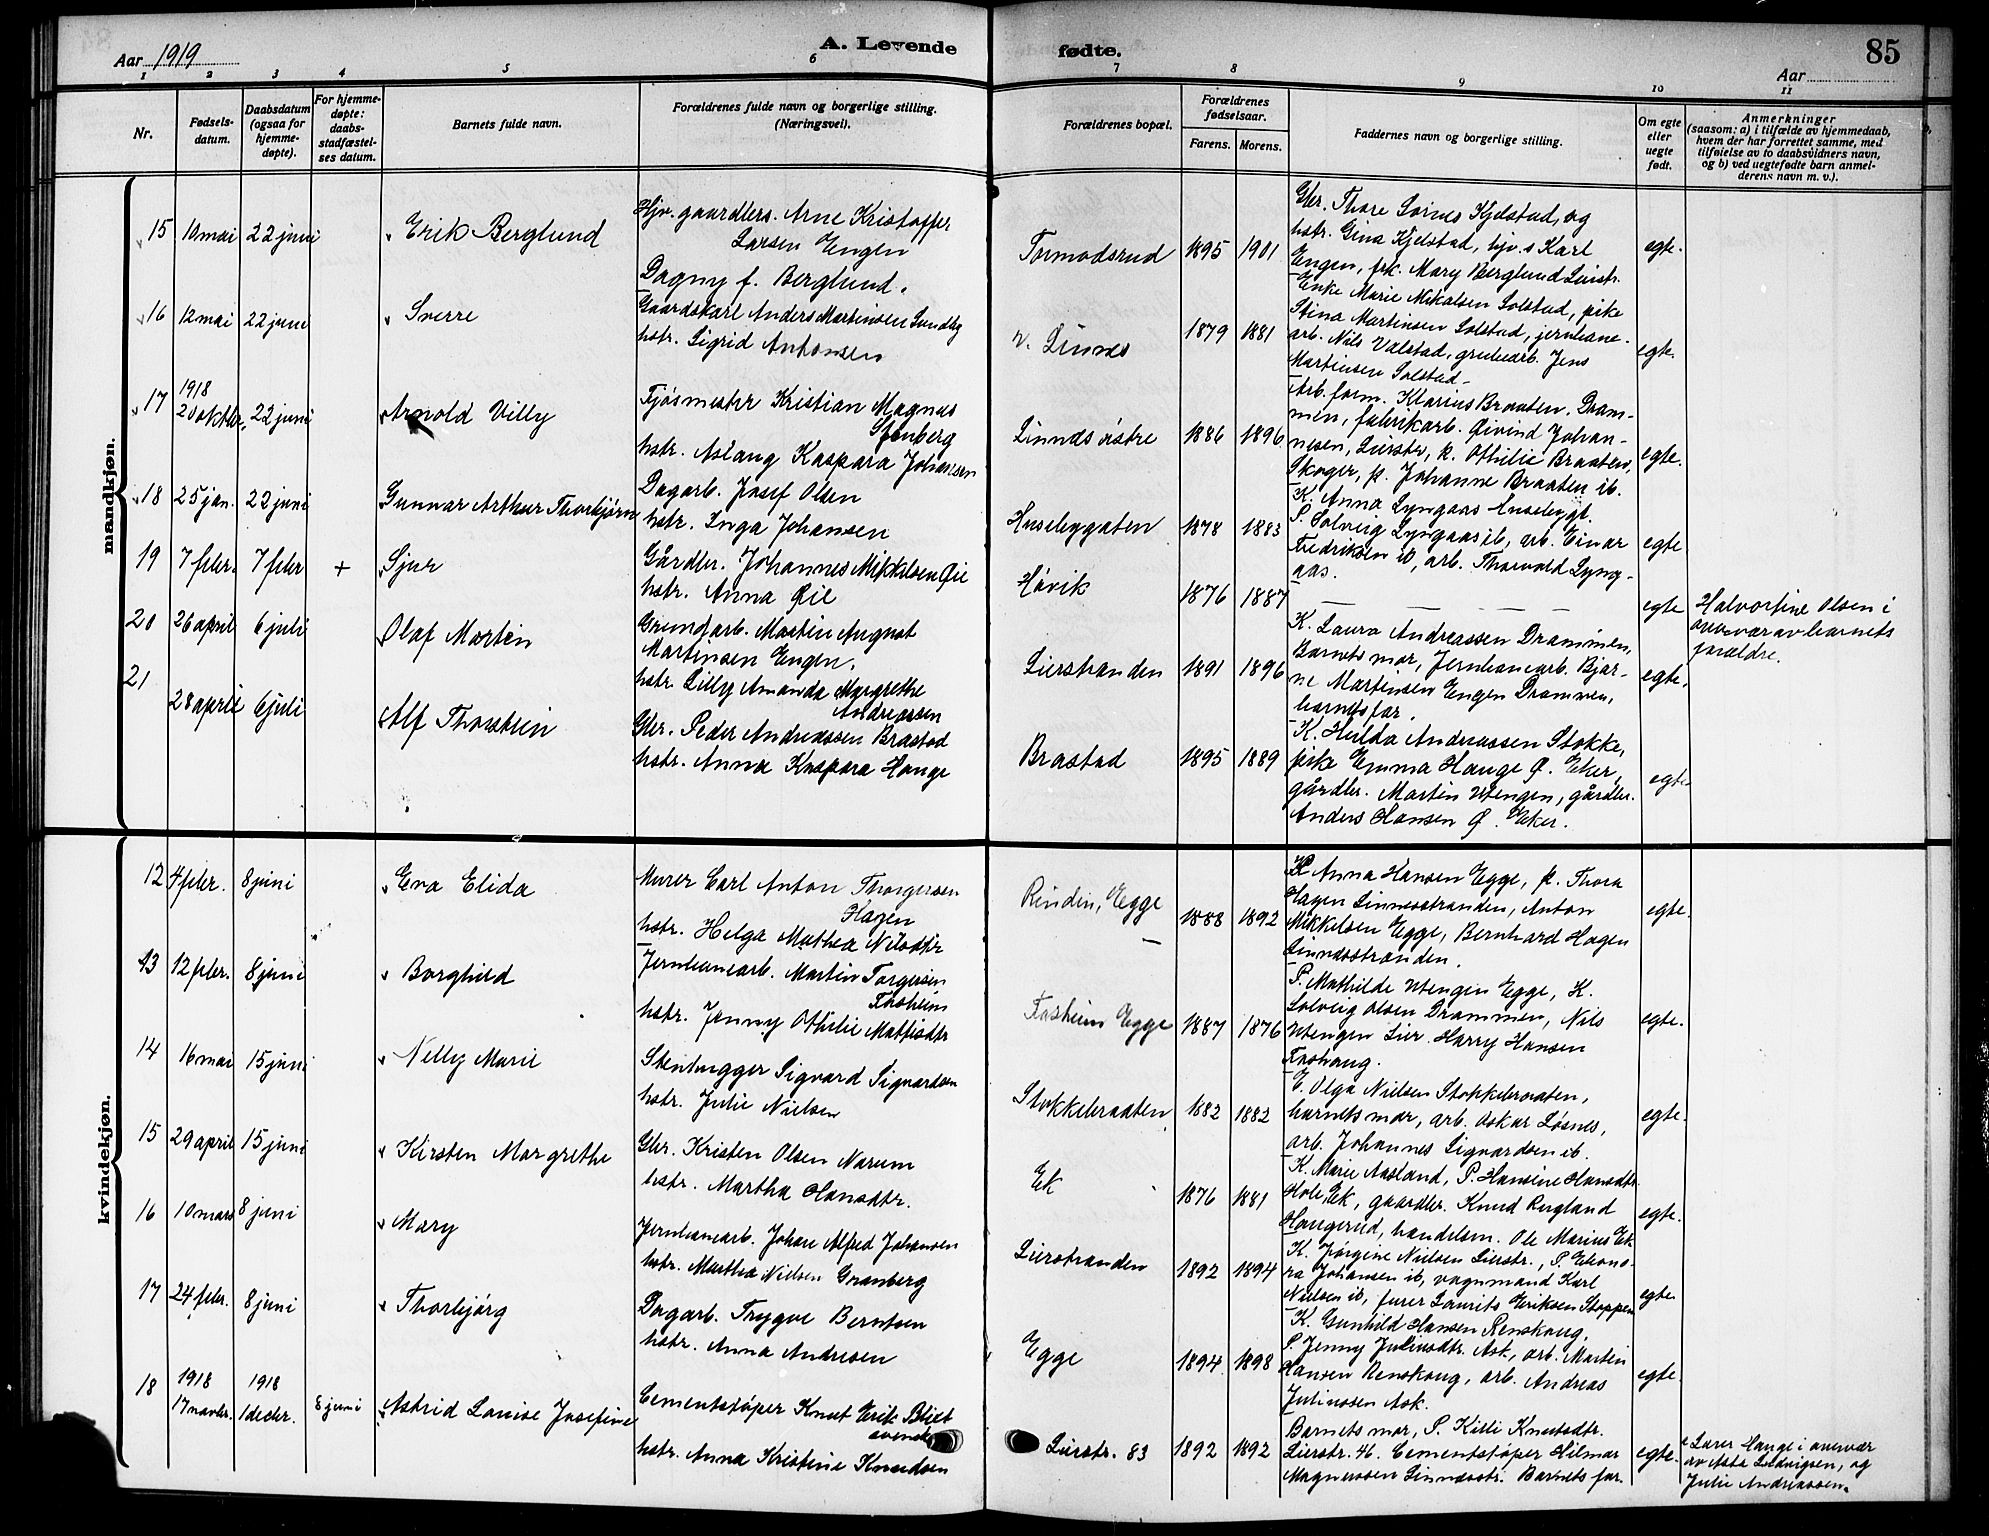 Aar 1919
A. Levende
fødte.
85
Aar
1 2 3 4 5 6 7 8 9 10 11
Nr.
Fødsels-
datum.
Daabsdatum
(ogsaa for
hjemme-
døpte).
For hjemme-
døpte:
daabs-
stadfæstel-
ses datum.
Barnets fulde navn.
Forældrenes fulde navn og borgerlige stilling.
(Næringsvei).
Forældrenes bopæl.
Forældrenes
fødselsaar.
Farens. Morens.
Faddernes navn og borgerlige stilling.
Om egte
eller
uegte
født.
Anmerkninger
(saasom: a) i tilfælde av hjemmedaab,
hvem der har forrettet samme, med
tilføielse av to daabsvidners navn,
og b) ved uegtefødte barn anmel-
derens navn m. v.).
mandkjøn.
15 10 mai 22 juni Erik Berglund
Hjv. gaardbrs. Arne Kristoffer
Larsen Engen
Dagny f. Berglund.
Tormodsrud 1895 1901
Gbr. Thore Sørnes Kjelstad, og
hstr. Gina Kjelstad, hjv.s Karl
Engen, frk. Mary Berglund Lierstr.
egte.
16 12 mai 22 juni Sverre
Gaardskarl Anders Martinsen Sundby
hstr. Sigrid Antonsen
v. Linnes 1879 1881
Enke Marie Nikolsen Solstad, pike
Stina Martinsen Solstad, jernbane-
arb. Nils Valstad, grubearb. Jens
Martinsen Solstad
egte.
17 1918
20 oktbr. 22 juni Arnold Villy
Fjøsmester Kristian Magnus
Stenberg
hstr. Aslaug Kaspara Johansen
Linnes østre 1886 1896
Arb.form. Klarius Braaten, Dram-
men, fabrikarb. Øivind Johan-
nesen, Lierstr, k. Othilie Braaten,
Skoger, p. Johanne Braaten ib.
egte.
18 25 jan. 22 juni Gunnar Arthur Thorbjørn
Dagarb. Josef Olsen
hstr. Inga Johansen
Husebygaten 1878 1883
K. Anna Lyngaas Husebygt.
P. Solveig Lyngaas ib, arb. Einar
Fredriksen ib, arb. Thorvald Lyng-
aas.
egte
19 7 febr. 7 febr + Sjur
Gårdbr. Johannes Mikkelsen Øie
hstr. Anna Øie
Høvik 1876 1887
egte
Halvortine Olsen i
overvær av barnets
forældre.
20 26 april 6 juli Olaf Martin
Grubearb. Martin August
Martinsen Engen.
hstr. Lilly Amanda Margrethe
Andreassen
Lierstranden 1891 1896
K. Laura Andreassen Drammen,
Barnets mor, Jernbanearb. Bjar-
ne Martinsen Engen Drammen,
barnets far.
egte.
21 28 april 6 juli Alf Thorstein
Gbr. Peder Andreassen Brastad
hstr. Anna Kaspara Hauge
Brastad 1895 1889
K. Hulda Andreassen Stokke,
pike Emma Hauge Ø. Eker,
gårdbr. Martin Utengen, gårdbr.
Anders Hansen Ø. Eker.
egte.
kvindekjøn.
12 4 febr. 8 juni Eva Elida
Murer Carl Anton Thorgersen
Hagen
hstr. Helga Mathea Nilsdtr
Rinden, Egge 1888 1892
K. Anna Hansen Egge, p. Thora
Hagen Linnesstranden, Anton
Mikkelsen Egge, Bernhard Hagen
Linnesstranden.
egte.
13 12 febr. 8 juni Borghild
Jernbanearb. Martin Torgersen
Fosheim
hstr. Jenny Othilie Mathisdtr
Fosheim Egge 1887 1876
P. Mathilde Utengen Egge, K.
Solveig Olsen Drammen, Nils
Utengen Lier. Harry Hansen
Foshaug.
egte.
14 16 mai 15 juni Nelly Marie
Stenhugger Sigvard Sigvardsen
hstr. Julie Nielsen
Stokkebraaten 1882 1882
E. Olga Nielsen Stokkebraaten,
barnets mor, arb. Oskar Løsnes,
arb. Johannes Sigvardsen ib.
egte.
15 29 april 15 juni Kirsten Margrethe
Gbr. Kristen Olsen Narum
hstr. Martha Hansdtr.
Ek 1876 1881
K. Marie Aasland, P. Hansine Hansdtr.
Hole, Ek, gaardbr. Knud Bergland
Haugerud, handelsm. Ole Marius Ek
egte.
16 10 mars 8 juni Mary
Jernbanearb. Johan Alfred Johansen
hstr. Martha Nielsen Granberg
Lierstranden 1892 1894
K. Jørgine Nielsen Lierstr., P. Eleono-
ra Johansen ib, vognmand Karl
Nielsen ib, furer Laurits Eriksen Stoppen
egte
17 24 febr. 8 juni Thorbjørg
Dagarb. Trygve Berntsen
hstr. Anna Andresen
Egge 1894 1898
K. Gunhild Hansen Renskoug.
P. Jenny Juliusdtr. Ask, arb. Martin
Hansen Renskoug, arb. Andreas
Juliussen Ask.
egte.
18 1918
17 novbr. 1918
1 decbr. 8 juni Astrid Louise Josefine
Cementstøper Knut Erik Bliet
svensk
hstr. Anna Kristine Knudsen
Lierstr. 83 1892 1892
Barnets mor, P. Kitti Knudsdtr.
Lierstr. 46. Cementstøper Hilmar
Magnussen Linnesstr. Barnets far.
egte.
Lærer Hauge i overvær
av Asta Ludvigsen, og
Julie Andreassen.